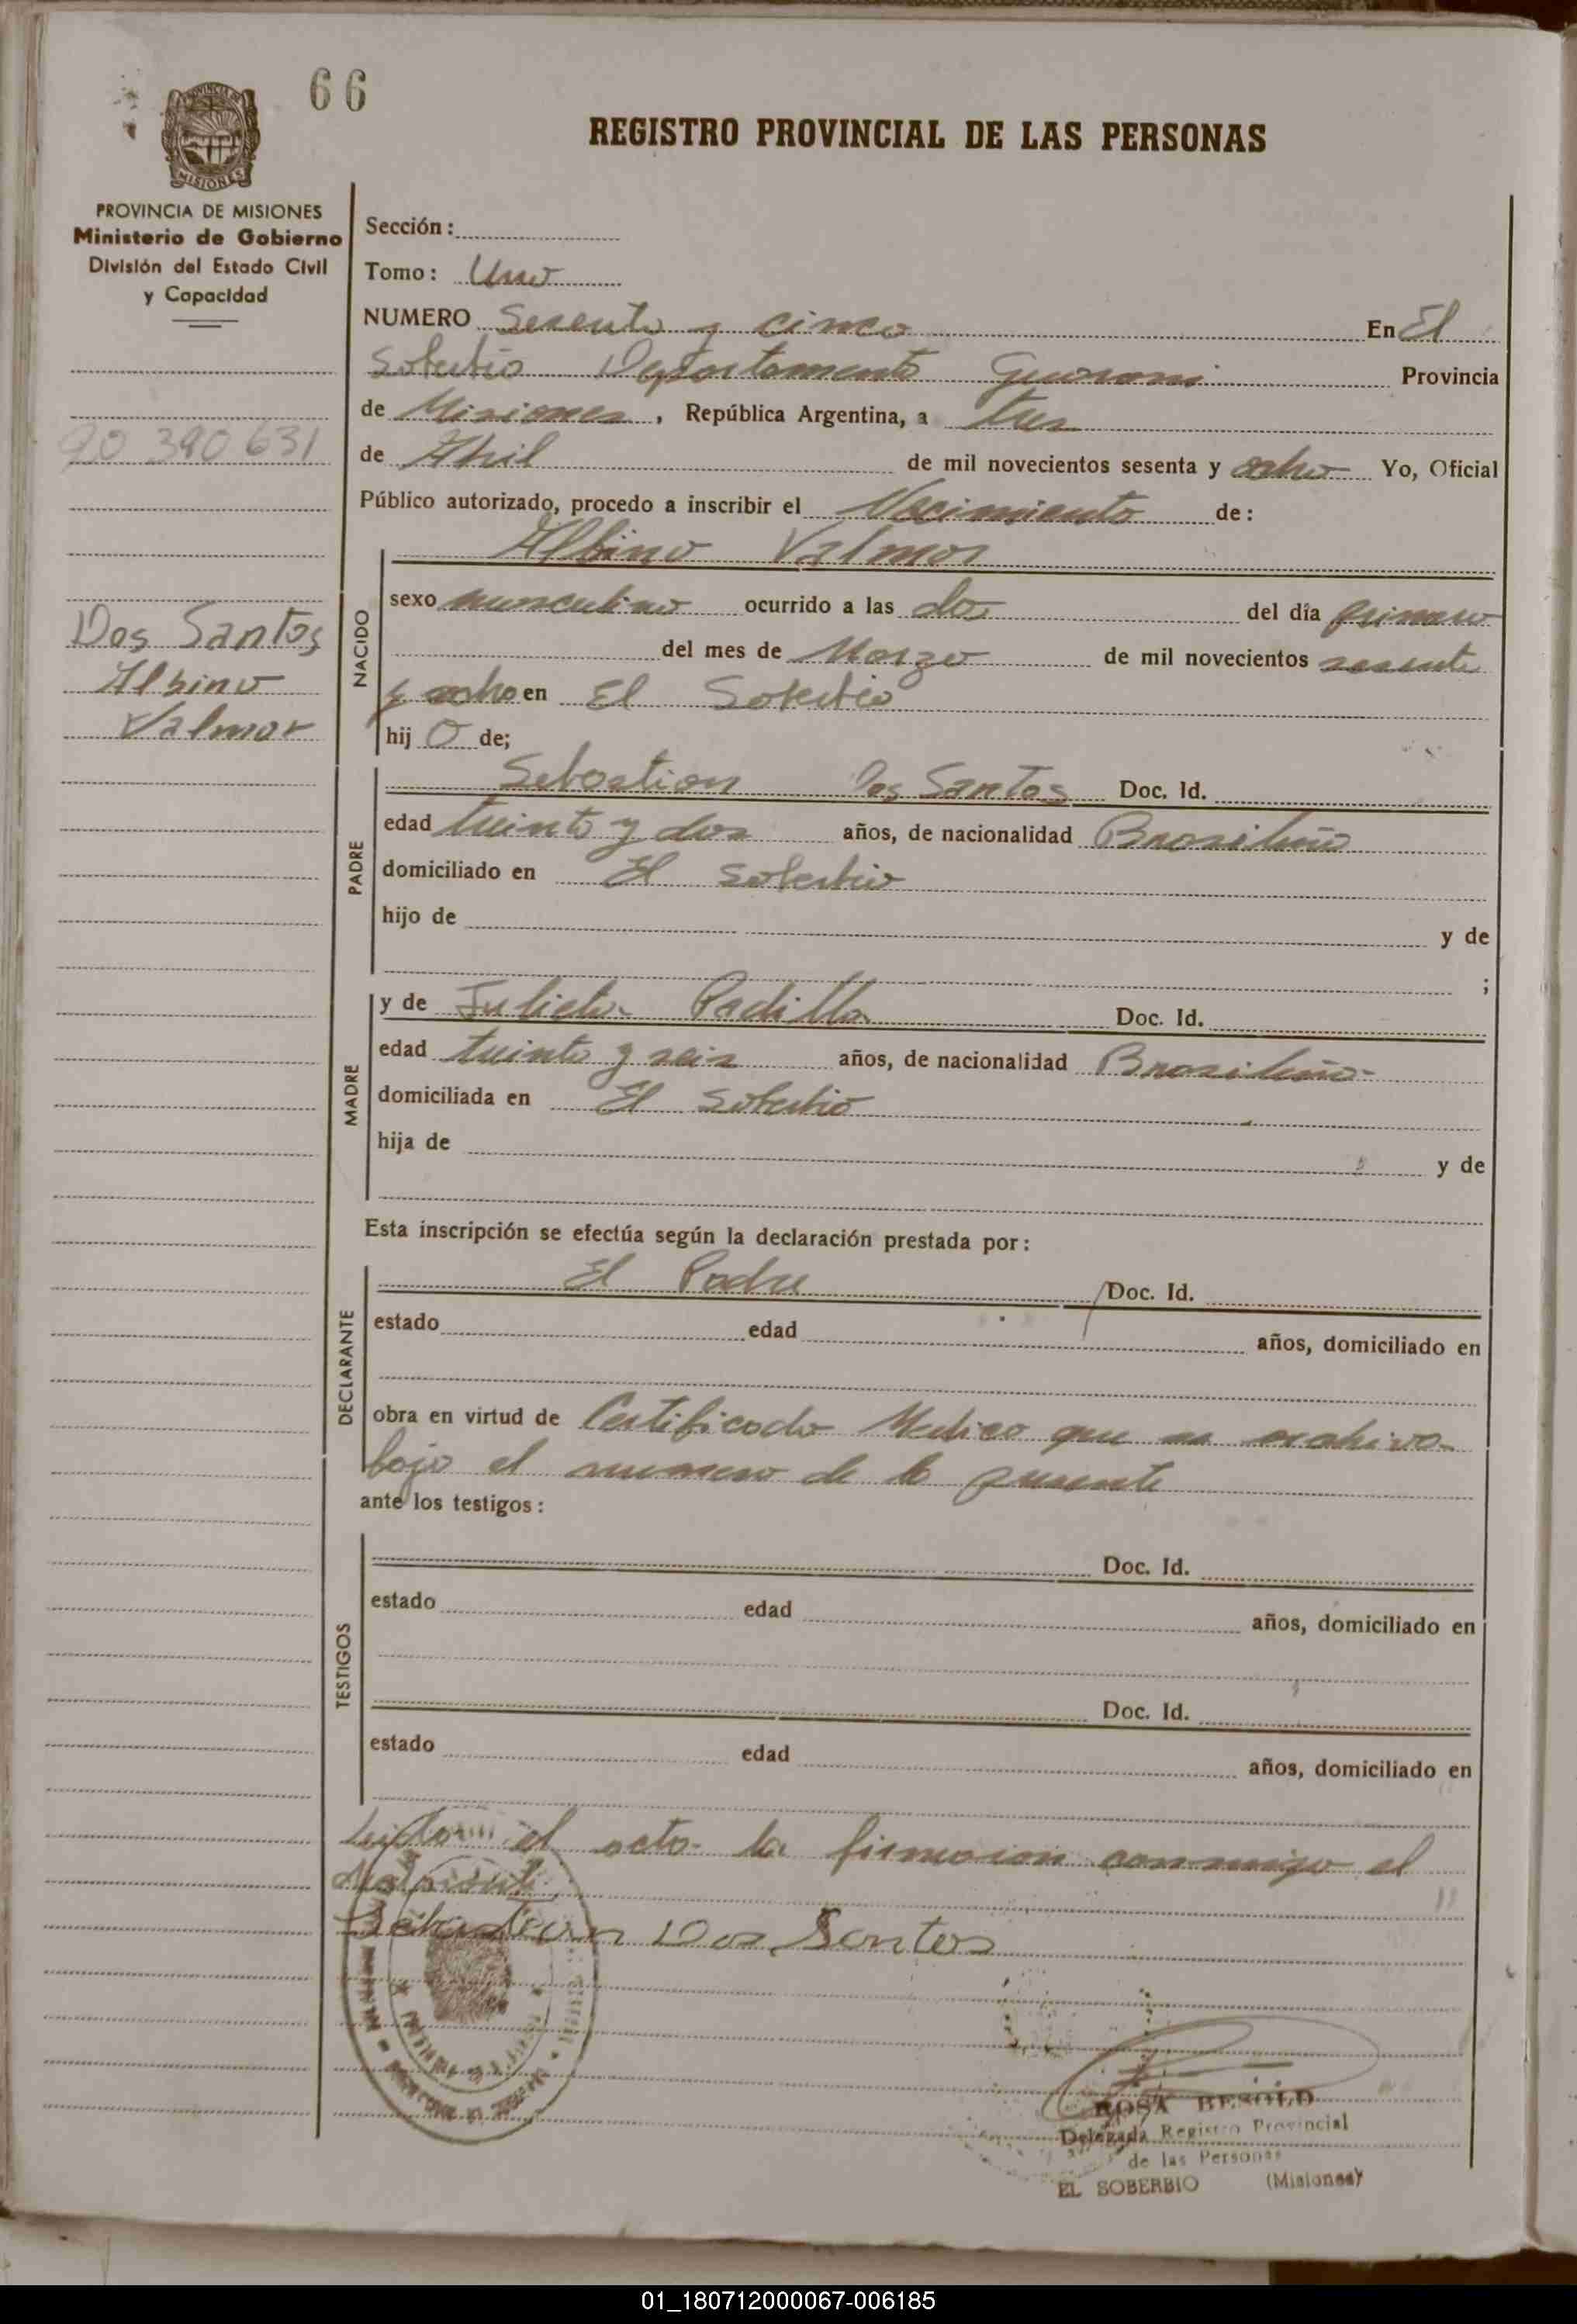 66
REGISTRO PROVINCIAL DE LAS PERSONAS
PROVINCIA DE MISIONES
Ministerio de Gobierno
División del Estado Civil
y Capacidad
20 390 631
Dos Santos
Albino
Valmor
Sección:
Tomo: Uno
NUMERO Sesenta y cinco En El
Soberbio Departamento Guarani Provincia
de Misiones, República Argentina, a tres
de Abril de mil novecientos sesenta y ocho Yo, Oficial
Público autorizado, procedo a inscribir el Nacimiento de:
Albino Valmor
NACIDO
sexo masculino ocurrido a las dos del día primero
del mes de Marzo de mil novecientos sesenta
y ocho en El Soberbio
hij o de;
PADRE
Sebastian Dos Santos Doc. Id.
edad treinta y dos años, de nacionalidad Brasileño
domiciliado en El Soberbio
hijo de
y de
;
MADRE
y de Julieta Padilla Doc. Id.
edad treinta y seis años, de nacionalidad Brasileña
domiciliada en El Soberbio
hija de
y de
Esta inscripción se efectúa según la declaración prestada por:
DECLARANTE
El Padre Doc. Id.
estado edad años, domiciliado en
obra en virtud de Certificado Medico que se archiva
bajo el numero de la presente
ante los testigos:
TESTIGOS
Doc. Id.
estado edad años, domiciliado en
Doc. Id.
estado edad años, domiciliado en
Leida el acta la firmaron conmigo el
Sebastian Dos Santos
ROSA BESOLD
Delegada Registro Provincial
de las Personas
EL SOBERBIO (Misiones)
01_180712000067-006185